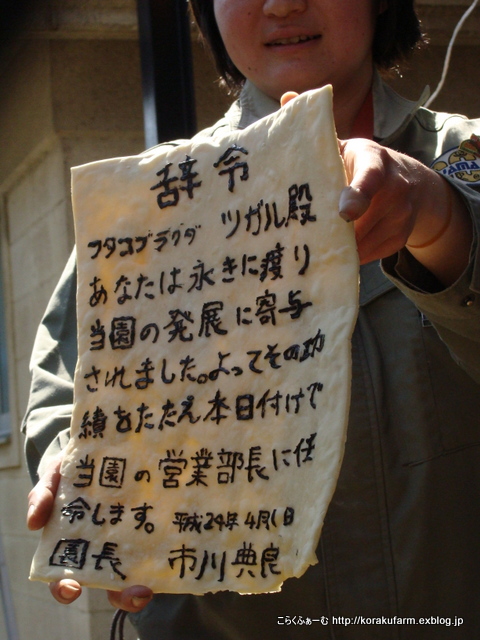 辞令
フタコブラクダ ツガル殿
あなたは永きに渡り
当園の発展に寄与
されました。よってその功
績をたたえ本日付けで
当園の営業部長に任
命します。 平成24年4月1日
園長 市川典良
こらくふぁーむ http://korakufarm.exblog.jp